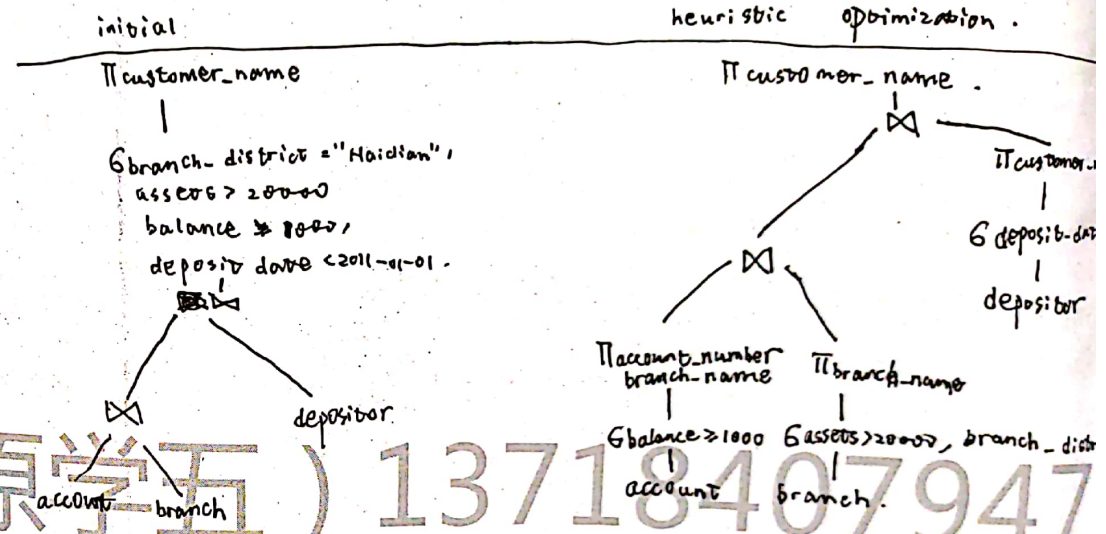 initial
heuristic optimization.
Π customer_name
б branch_district = "Haidian",
assets > 20000
balance ≥ 1000,
deposit date < 2011-01-01.
⋈
⋈
depositor
account
branch
Π customer_name.
⋈
Π customer_n
б deposit-dat
depositor
⋈
Π account_number
branch-name
Π branch_name
б balance ≥ 1000
б assets > 20000, branch_distr
account
branch.
原学五）13718407947